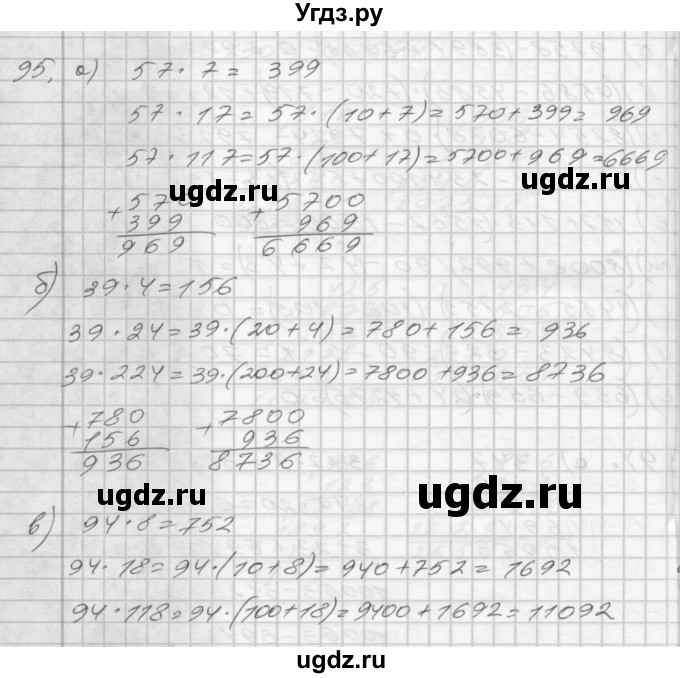 Угдз.ру
95, а) 57 · 7 = 399
57 · 17 = 57 · (10 + 7) = 570 + 399 = 969
57 · 117 = 57 · (100 + 17) = 5700 + 969 = 6669
ugdz.ru ugdz.ru
+ 570 + 5700
399 969
969 6669
б) 39 · 4 = 156
39 · 24 = 39 · (20 + 4) = 780 + 156 = 936
39 · 224 = 39 · (200 + 24) = 7800 + 936 = 8736
+ 780 + 7800
156 936
936 8736
ugdz.ru ugdz.ru
в) 94 · 8 = 752
94 · 18 = 94 · (10 + 8) = 940 + 752 = 1692
94 · 118 = 94 · (100 + 18) = 9400 + 1692 = 11092
ugdz.ru